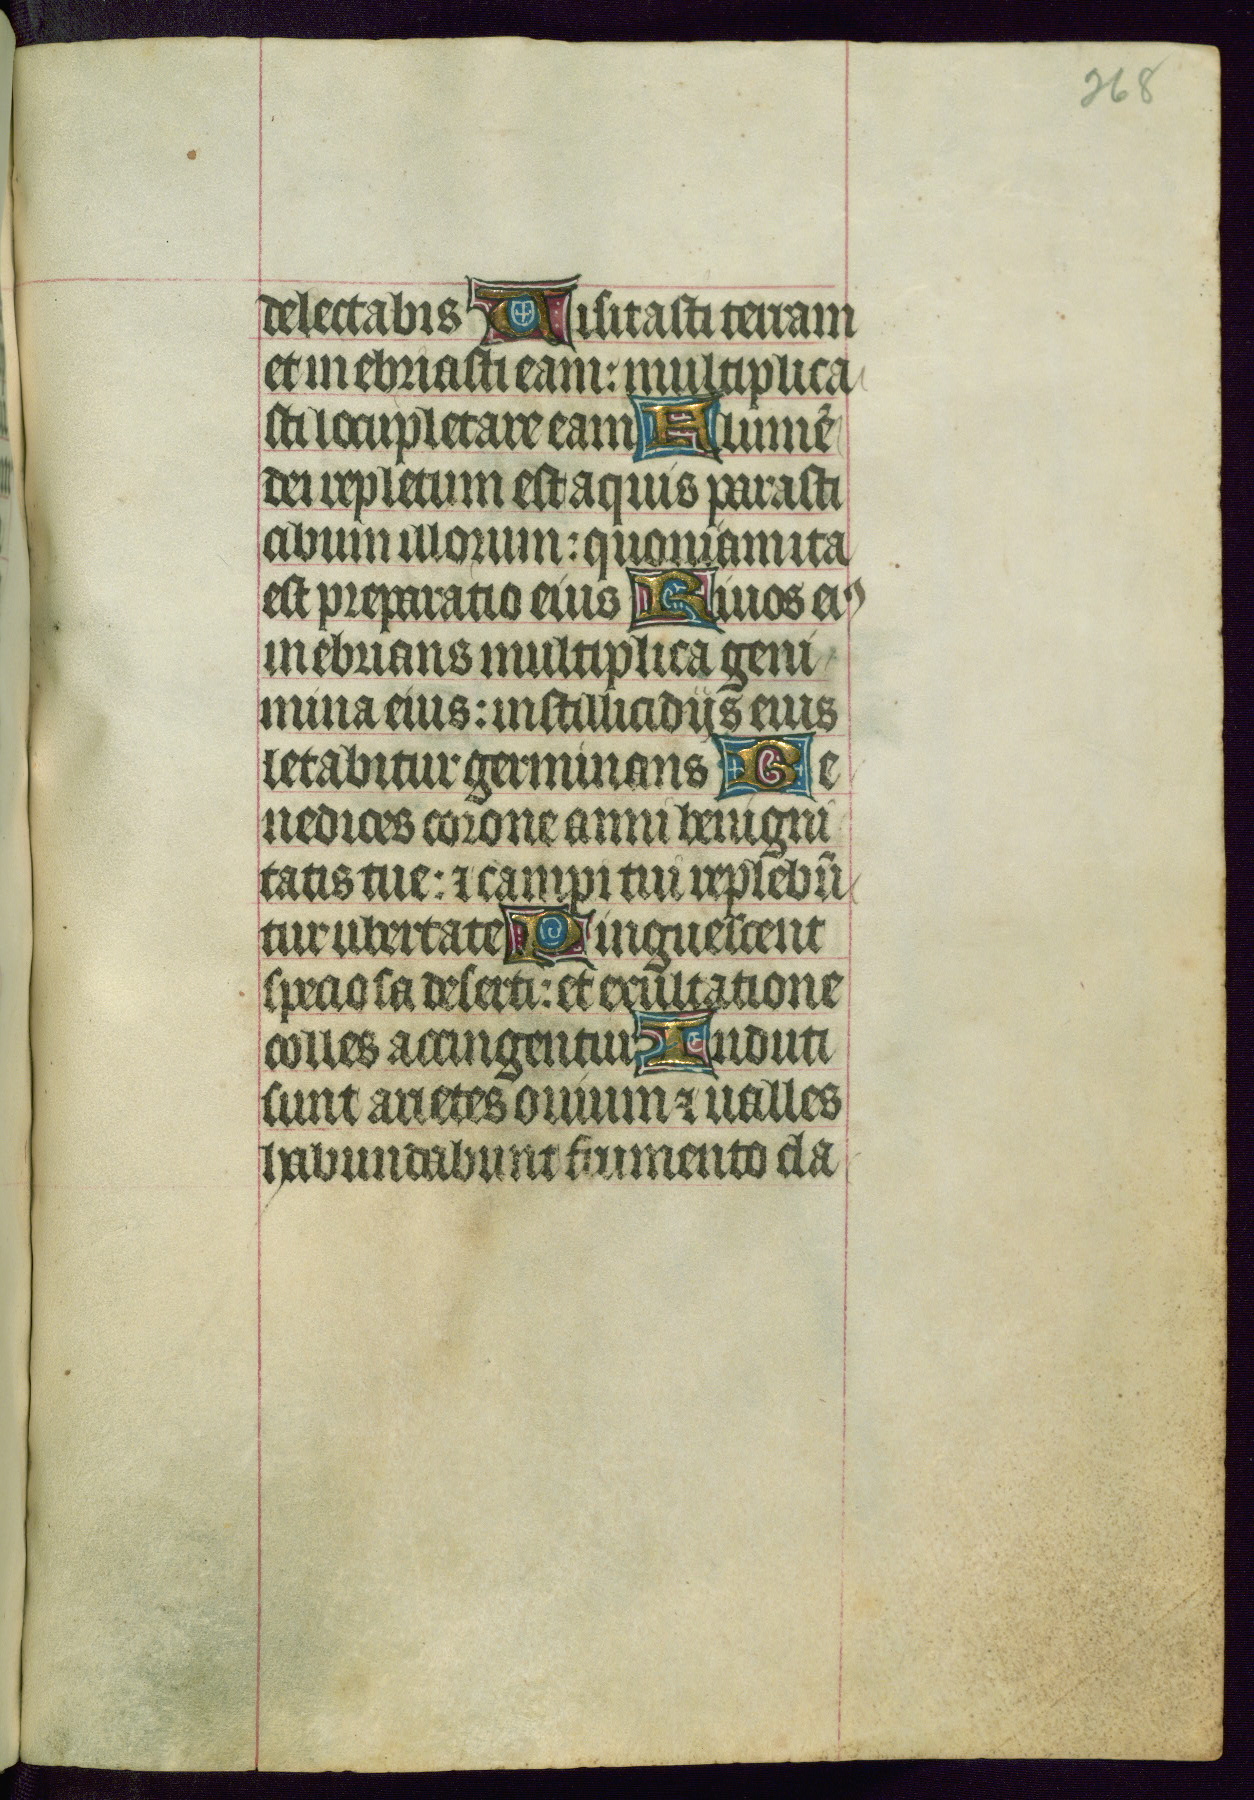 268
delectabis Uisitasti terram
et inebriasti eam: multiplica
sti locupletare eam Flumē
dei repletum est aquis parasti
cibum illorum: quoniam ita
est preparatio eius Riuos eiꝰ
inebrians multiplica geni
mina eius: in stillicidijs eius
letabitur germinans Be
nedices corone anni benigni
tatis tue: ⁊ campi tui replebū
tur ubertate Pinguescent
speciosa deserti: et exultatione
colles accingentur Induti
sunt arietes ouium ⁊ ualles
habundabunt frumento cla